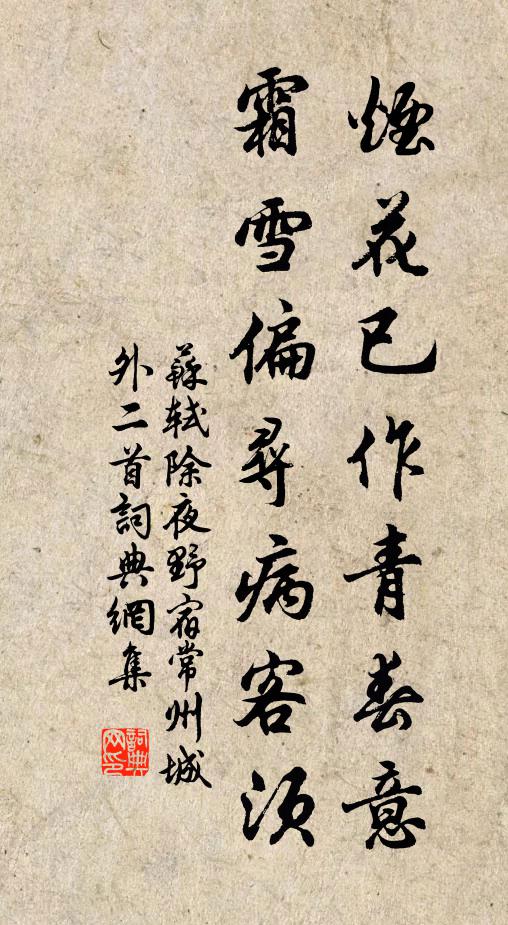 煙花已作青春意
霜雪偏尋病客須
蘇軾除夜野宿常州城
外二首詞典網集
詞典
网印